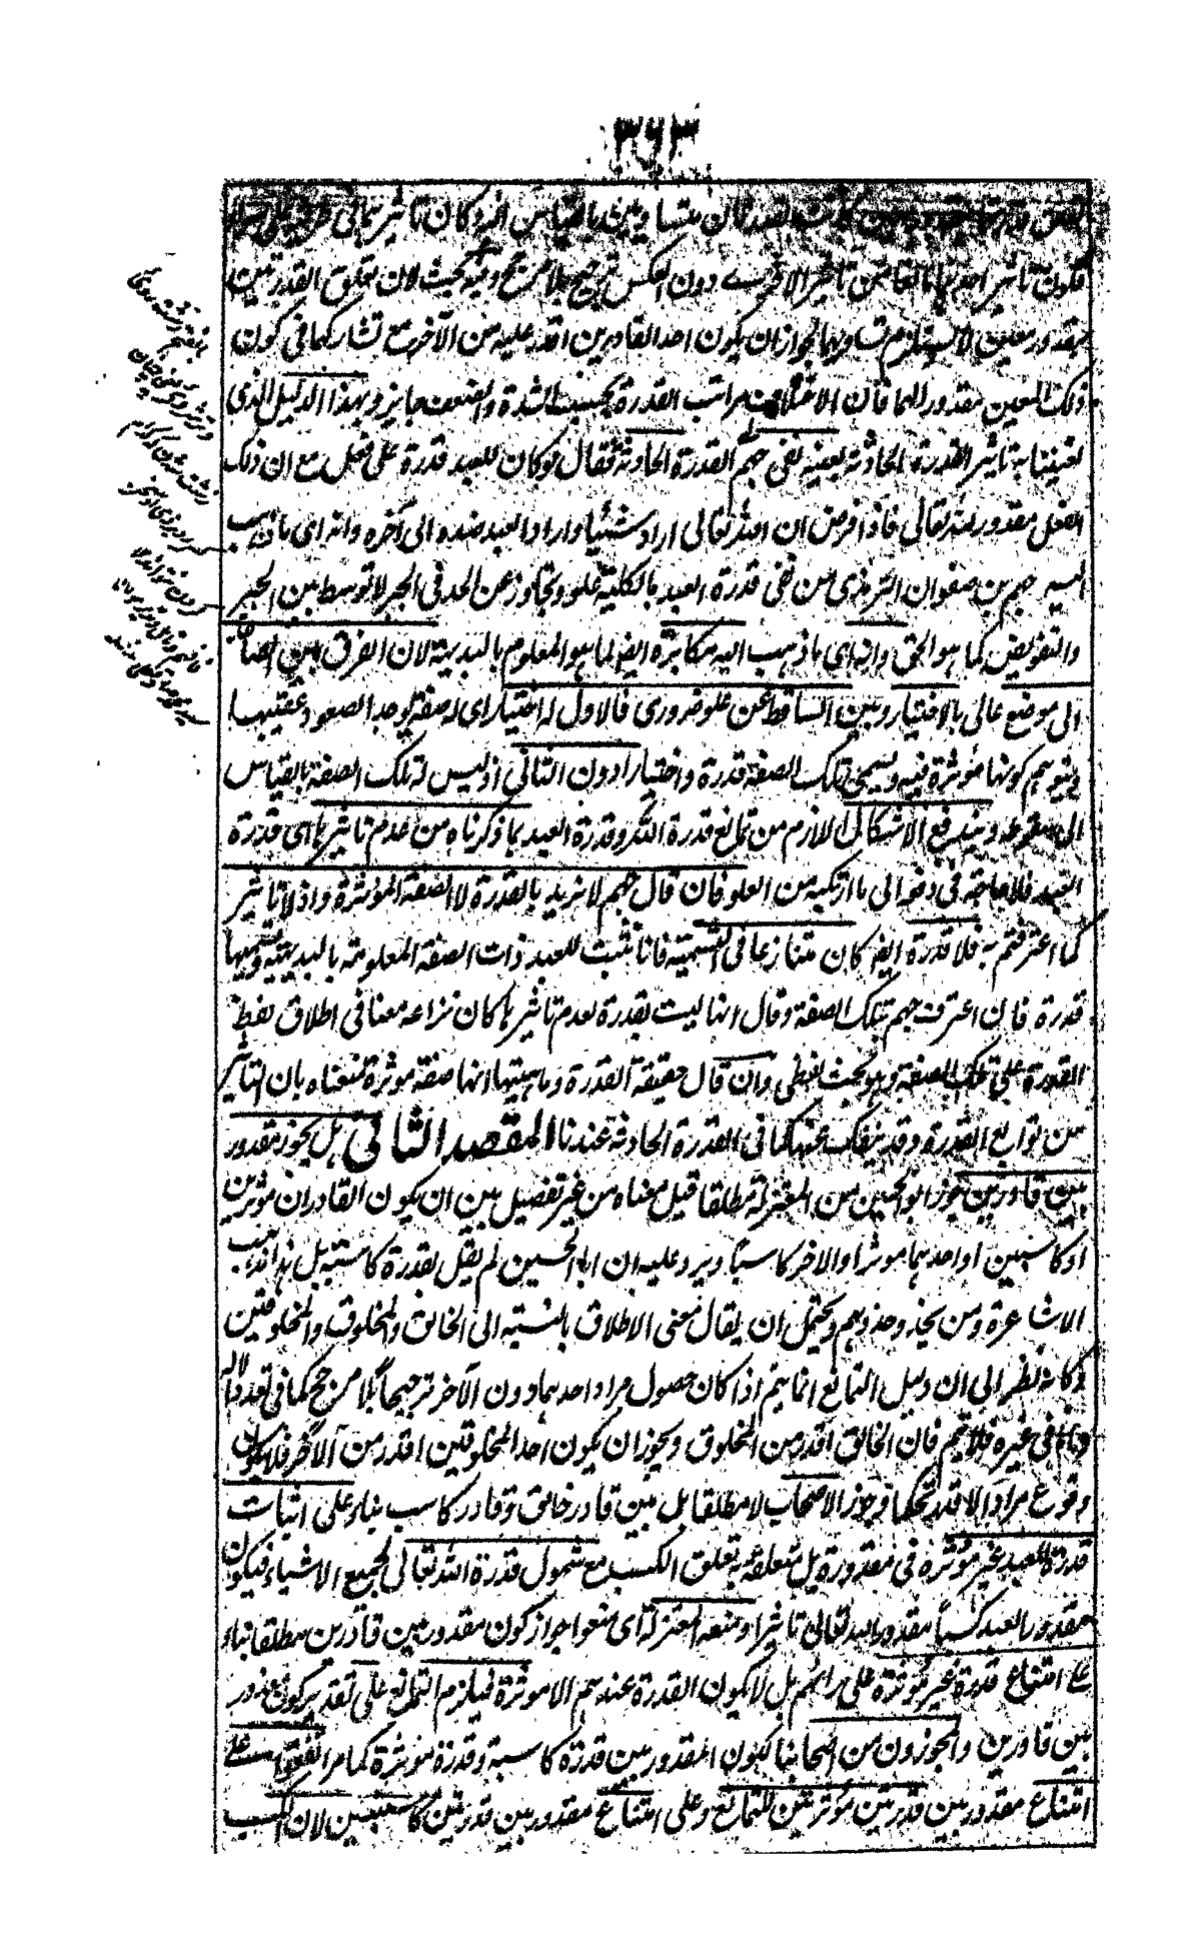 ٣٦٣
متساويين بالقياس اليه وكان تاثيرهما فى طرفيه على السواء
فيكون تاثير احدهما مانعا من تاثير الاخرى دون العكس ترجيح بلا مرجح وفيه بحث لان تعلق القدرتين
بمقدور معين لا يستلزم تساويهما لجواز ان يكون احد القادرين اقدر عليه من الآخر مع تشاركهما فى كون
ذلك المعين مقدورا لهما فان الاختلاف مراتب القدرة بحسب الشدة والضعف جايز وبهذا الدليل الذى
نفينا به تاثير القدرة الحادثة بعينه نفى جهم القدرة الحادثة فقال لو كان للعبد قدرة على فعل مع ان ذلك
الفعل مقدور لله تعالى فاذا فرض ان الله تعالى اراد شيئا واراد العبد ضده الى آخره وانه اى ما ذهب
اليه جهم بن صفوان الترمذى من نفى قدرة العبد بالكلية غلو وتجاوز عن الحد فى الجبر لا توسط بين الجبر
والتفويض كما هو الحق وانه اى ما ذهب اليه مكابرة ايضا لما هو المعلوم بالبديهة لان الفرق بين الصاعد
الى موضع عال بالاختيار وبين الساقط عن علو ضرورى فالاول له اختيار اى له صفة يوجد الصعود عقيبها
ويتوهم كونها موثرة فيه ويسمى تلك الصفة قدرة واختيارا دون الثانى اذ ليس له تلك الصفة بالقياس
الى سقوطه ويندفع الاشكال اللازم من تمانع قدرة الله وقدرة العبد بما ذكرناه من عدم تاثيرها اى قدرة
العبد فلا حاجة فى دفعه الى ما ارتكبه من الغلو فان قال جهم لا نريد بالقدرة لا الصفة المؤثرة واذ لا تاثير
كما اعترفتم به فلا قدرة ايضا كان متنازعا فى التسمية فانا نثبت للعبد ذات الصفة المعلومة بالبديهة ونسميها
قدرة فان اعترف جهم بتلك الصفة وقال انها ليست بقدرة لعدم تاثيرها كان نزاعه معنا فى اطلاق لفظ
القدرة على تلك الصفة وهو بحث لفظى وان قال حقيقة القدرة وماهيتها انها صفة موثرة منعناه بان التاثير
من توابع القدرة وقد ينفك عنها كما فى القدرة الحادثة عندنا المقصد الثانى هل يجوز مقدور
بين قادرين جوزه ابو الحسين من المعتزلة مطلقا قيل معناه من غير تفصيل بين ان يكون القادران موثرين
او كاسبين او احدهما موثرا والآخر كاسبا ويرد عليه ان ابا الحسين لم يقل بقدرة كاسبة بل هذا مذهب
الاشاعرة ومن يحذو حذوهم ويحتمل ان يقال معنى الاطلاق بالنسبة الى الخالق والمخلوق والمخلوقين
وكانه نظر الى ان دليل التمانع انما يتم اذا كان حصول مراد احدهما دون الآخر ترجيحا بلا مرجح كما فى تعدد الآله
واما فى غيره فلا يتم فان الخالق اقدر من المخلوق ويجوز ان يكون احد المخلوقين اقدر من الآخر فلا يكون
وقوع مراد الاقدر تحكما وجوزه الاصحاب لا مطلقا بل بين قادر خالق وقادر كاسب بناء على اثبات
قدرة للعبد غير موثرة فى مقدوره بل متعلقة به تعلق الكسب مع شمول قدرة الله تعالى لجميع الاشياء فيكون
مقدور العبد كسبا مقدورا لله تعالى تاثيرا ومنعه المعتزلة اى منعوا جواز كون مقدور بين قادرين مطلقا بناء
على امتناع قدرة غير موثرة على رائهم بل لا يكون القدرة عندهم الا موثرة فيلزم التمانع على تقدير كون مقدور
بين قادرين والمجوزون من اصحابنا لكون المقدور بين قدرة كاسبة وقدرة موثرة كما مر اتفقوا على
امتناع مقدور بين قدرتين مؤثرتين للتمانع وعلى امتناع مقدور بين قدرتين كاسبتين لان الكسب